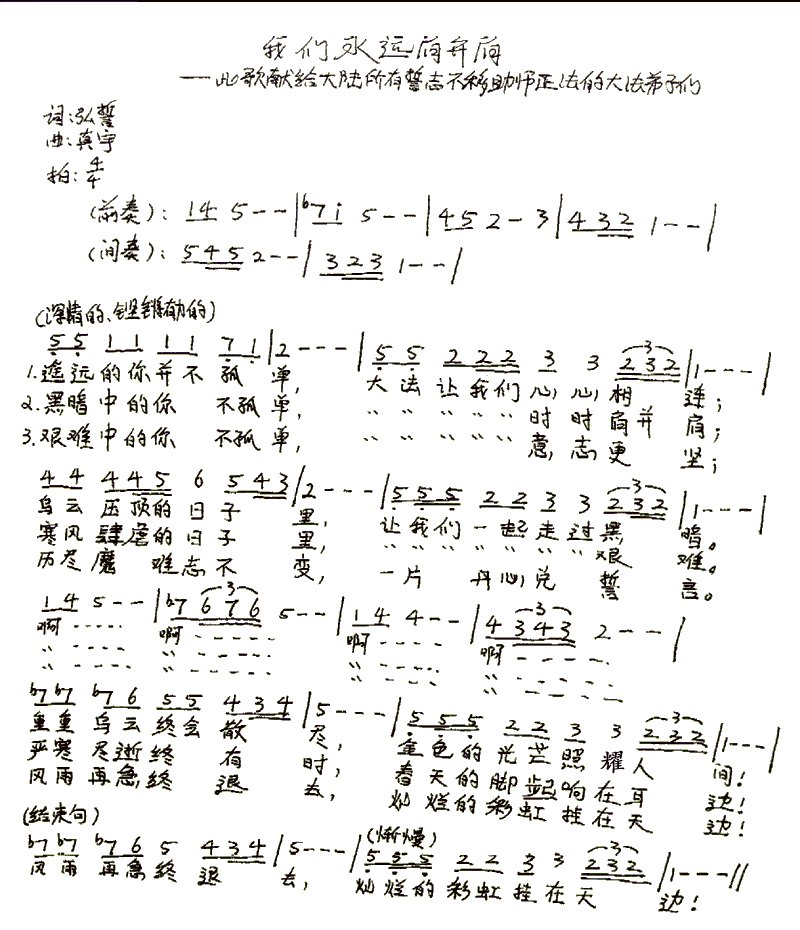 我们永远肩并肩
——此歌献给大陆所有誓志不移助师正法的大法弟子们
词:弘誓
曲:真宇
拍:4/4
(前奏): 14 5--|♭7i 5--|45 2-3|432 1--|
(间奏): 545 2--|323 1--|
(深情的、铿锵有力的)
55 11 11 71|2---|55 222 3 3 232|1---|
1.遥远的你并不孤单, 大法让我们心心相连;
2.黑暗中的你 不孤单, 〃〃〃〃〃时时肩并肩;
3.艰难中的你 不孤单, 〃〃〃〃〃意志更坚;
44 445 6 543|2---|555 22 3 3 232|1---|
乌云压顶的日子里, 让我们一起走过黑暗。
寒风肆虐的日子里, 〃〃〃〃〃〃〃艰难。
历尽魔难志不变, 一片丹心兑誓言。
14 5--|♭7676 5--|14 4--|4343 2--|
啊----- 啊------ 啊---- 啊------
〃----- 〃------ 〃---- 〃------
〃----- 〃------ 〃---- 〃------
♭7♭7 ♭76 55 434|5---|555 22 3 3 232|1---|
重重乌云终会散尽, 金色的光芒照耀人间!
严寒尽逝终有时, 春天的脚步响在耳边!
风雨再急终退去, 灿烂的彩虹挂在天边!
(结束句)
(渐慢)
♭7♭7 ♭76 5 434|5---|555 22 3 3 232|1---||
风雨再急终退去, 灿烂的彩虹挂在天边!